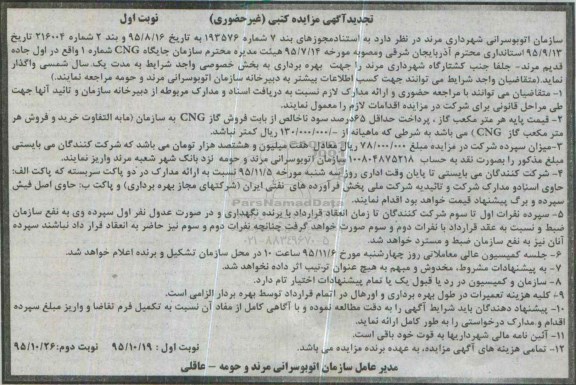 تجدیدآگهی مزایده کتبی (غیرحضوری) نوبت اول
سازمان اتوبوسرانی شهرداری مرند در نظر دارد به استنادمجوزهای بند ۷ شماره ۱۹۳۵۷۶ به تاریخ ۹۵/۸/۱۶ و بند ۲ شماره ۲۱۶۰۰۴ تاریخ
۹۵/۹/۱۳ استانداری محترم آذربایجان شرقی ومصوبه مورخه ۹۵/۷/۱۴ هیئت مدیره محترم سازمان جایگاه CNG شماره ۱ واقع در اول جاده
قدیم مرند- جلفا جنب کشتارگاه شهرداری مرند را جهت بهره برداری به بخش خصوصی واجد شرایط به مدت یک سال شمسی واگذار
نماید.(متقاضیان واجد شرایط می توانند جهت کسب اطلاعات بیشتر به دبیرخانه سازمان اتوبوسرانی مرند و حومه مراجعه نمایند.)
۱- متقاضیان می توانند با مراجعه حضوری و ارائه مدارک لازم نسبت به دریافت اسناد و مدارک مربوطه از دبیرخانه سازمان و تائید آنها جهت
طی مراحل قانونی برای شرکت در مزایده اقدامات لازم را معمول نمایند.
۲- قیمت پایه هر متر مکعب گاز ، پرداخت حداقل ۶۵درصد سود ناخالص از بابت فروش گاز CNG به سازمان (مابه التفاوت خرید و فروش هر
متر مکعب گاز CNG ) می باشد به شرطی که ماهیانه از -/۱۳۰/۰۰۰/۰۰۰ ریال کمتر نباشد.
۳-میزان سپرده شرکت در مزایده مبلغ ۷۸/۰۰۰/۰۰۰ ریال معادل هفت میلیون و هشتصد هزار تومان می باشد که شرکت کنندگان می بایستی
مبلغ مذکور را بصورت نقد به حساب ۱۰۰۸۰۴۸۷۵۲۱۸ سازمان اتوبوسرانی مرند و حومه نزد بانک شهر شعبه مرند واریز نمایند.
۴- شرکت کنندگان می بایستی تا پایان وقت اداری روز سه شنبه مورخه ۹۵/۱۱/۵ نسبت به ارائه مدارک در دو پاکت سربسته که پاکت الف:
حاوی اسنادو مدارک شرکت و تائیدیه شرکت ملی پخش فرآورده های نفتی ایران (شرکتهای مجاز بهره برداری) و پاکت ب: حاوی اصل فیش
سپرده و برگ پیشنهاد قیمت خواهد بود اقدام نمایند.
۵- سپرده نفرات اول تا سوم شرکت کنندگان تا زمان انعقاد قرارداد با برنده نگهداری و در صورت عدول نفر اول سپرده وی به نفع سازمان
ضبط و نسبت به عقد قرارداد با نفرات دوم و سوم صورت خواهد گرفت چنانچه نفرات دوم و سوم نیز حاضر به انعقاد قرار داد نباشند سپرده
آنان نیز به نفع سازمان ضبط و مسترد خواهد شد.
۶- جلسه کمیسیون عالی معاملاتی روز چهارشنبه مورخ ۹۵/۱۱/۶ ساعت ۱۰ در محل سازمان تشکیل و برنده اعلام خواهد شد.
۷- به پیشنهادات مشروط، مخدوش و مبهم به هیچ عنوان ترتیب اثر داده نخواهد شد.
۸- سازمان و کمیسیون در رد یا قبول یک یا تمام پیشنهادات اختیار تام دارد.
۹- کلیه هزینه تعمیرات در طول بهره برداری و اورهال در اتمام قرارداد توسط بهره بردار الزامی است.
۱۰- پیشنهاد دهندگان باید شرایط آگهی را به دقت مطالعه نموده و با آگاهی کامل از مفاد آن نسبت به تکمیل فرم تقاضا و واریز مبلغ سپرده
اقدام و مدارک درخواستی را به طور کامل ارائه نماید.
۱۱- آئین نامه مالی شهرداریها به قوت خود باقی است.
۱۲- تمامی هزینه های آگهی مزایده، به عهده برنده مزایده می باشد. نوبت اول : ۹۵/۱۰/۱۹ نوبت دوم:۹۵/۱۰/۲۶
مدیر عامل سازمان اتوبوسرانی مرند و حومه - عاقلی
ParsNamadData
۰۲۱-۸۸۳۴۹۶۷۰-۵